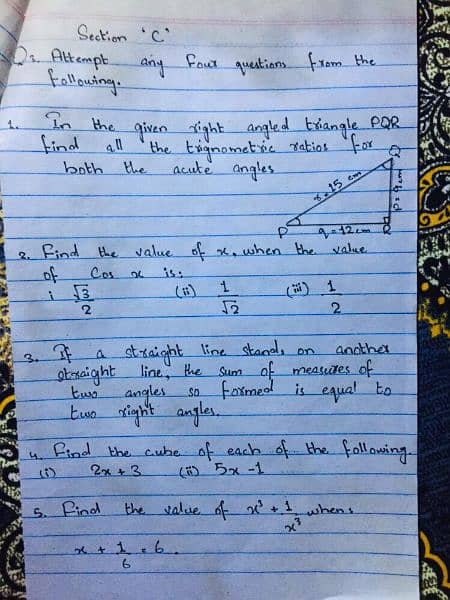 Section 'C'
Q3. Attempt any Four questions from the
following.
1. In the given right angled triangle PQR
find all the trignometric ratios for
both the acute angles
Q
r = 15 cm
p = 9 cm
P
q = 12 cm
R
2. Find the value of x, when the value
of Cos x is:
i √3/2 (ii) 1/√2 (iii) 1/2
3. If a straight line stands on another
straight line, the sum of measures of
two angles so formed is equal to
two right angles.
4. Find the cube of each of the following.
(i) 2x + 3 (ii) 5x - 1
5. Find the value of x³ + 1/x³ when:
x + 1/6 = 6.